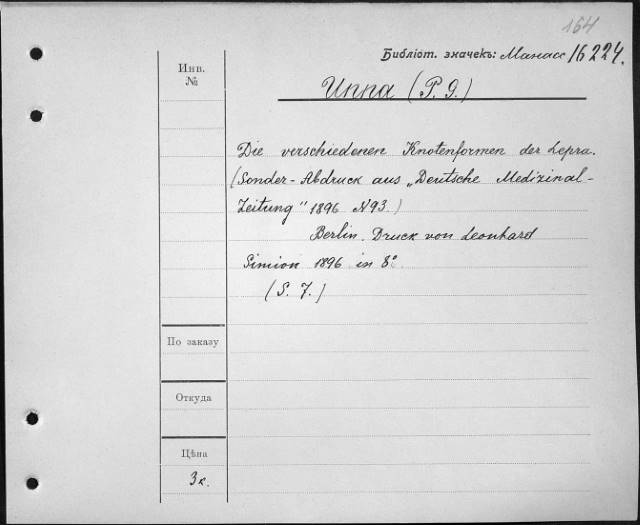 164
Библіот. значекъ: Манасс 16224.
Инв.
№
Unna (P. G.)
Die verschiedenen Knotenformen der Lepra.
(Sonder-Abdruck aus „Deutsche Medizinal-
Zeitung" 1896 N93.)
Berlin. Druck von Leonhard
Simion 1896 in 8°.
(S. 7.)
По заказу
Откуда
Цѣна
3к.